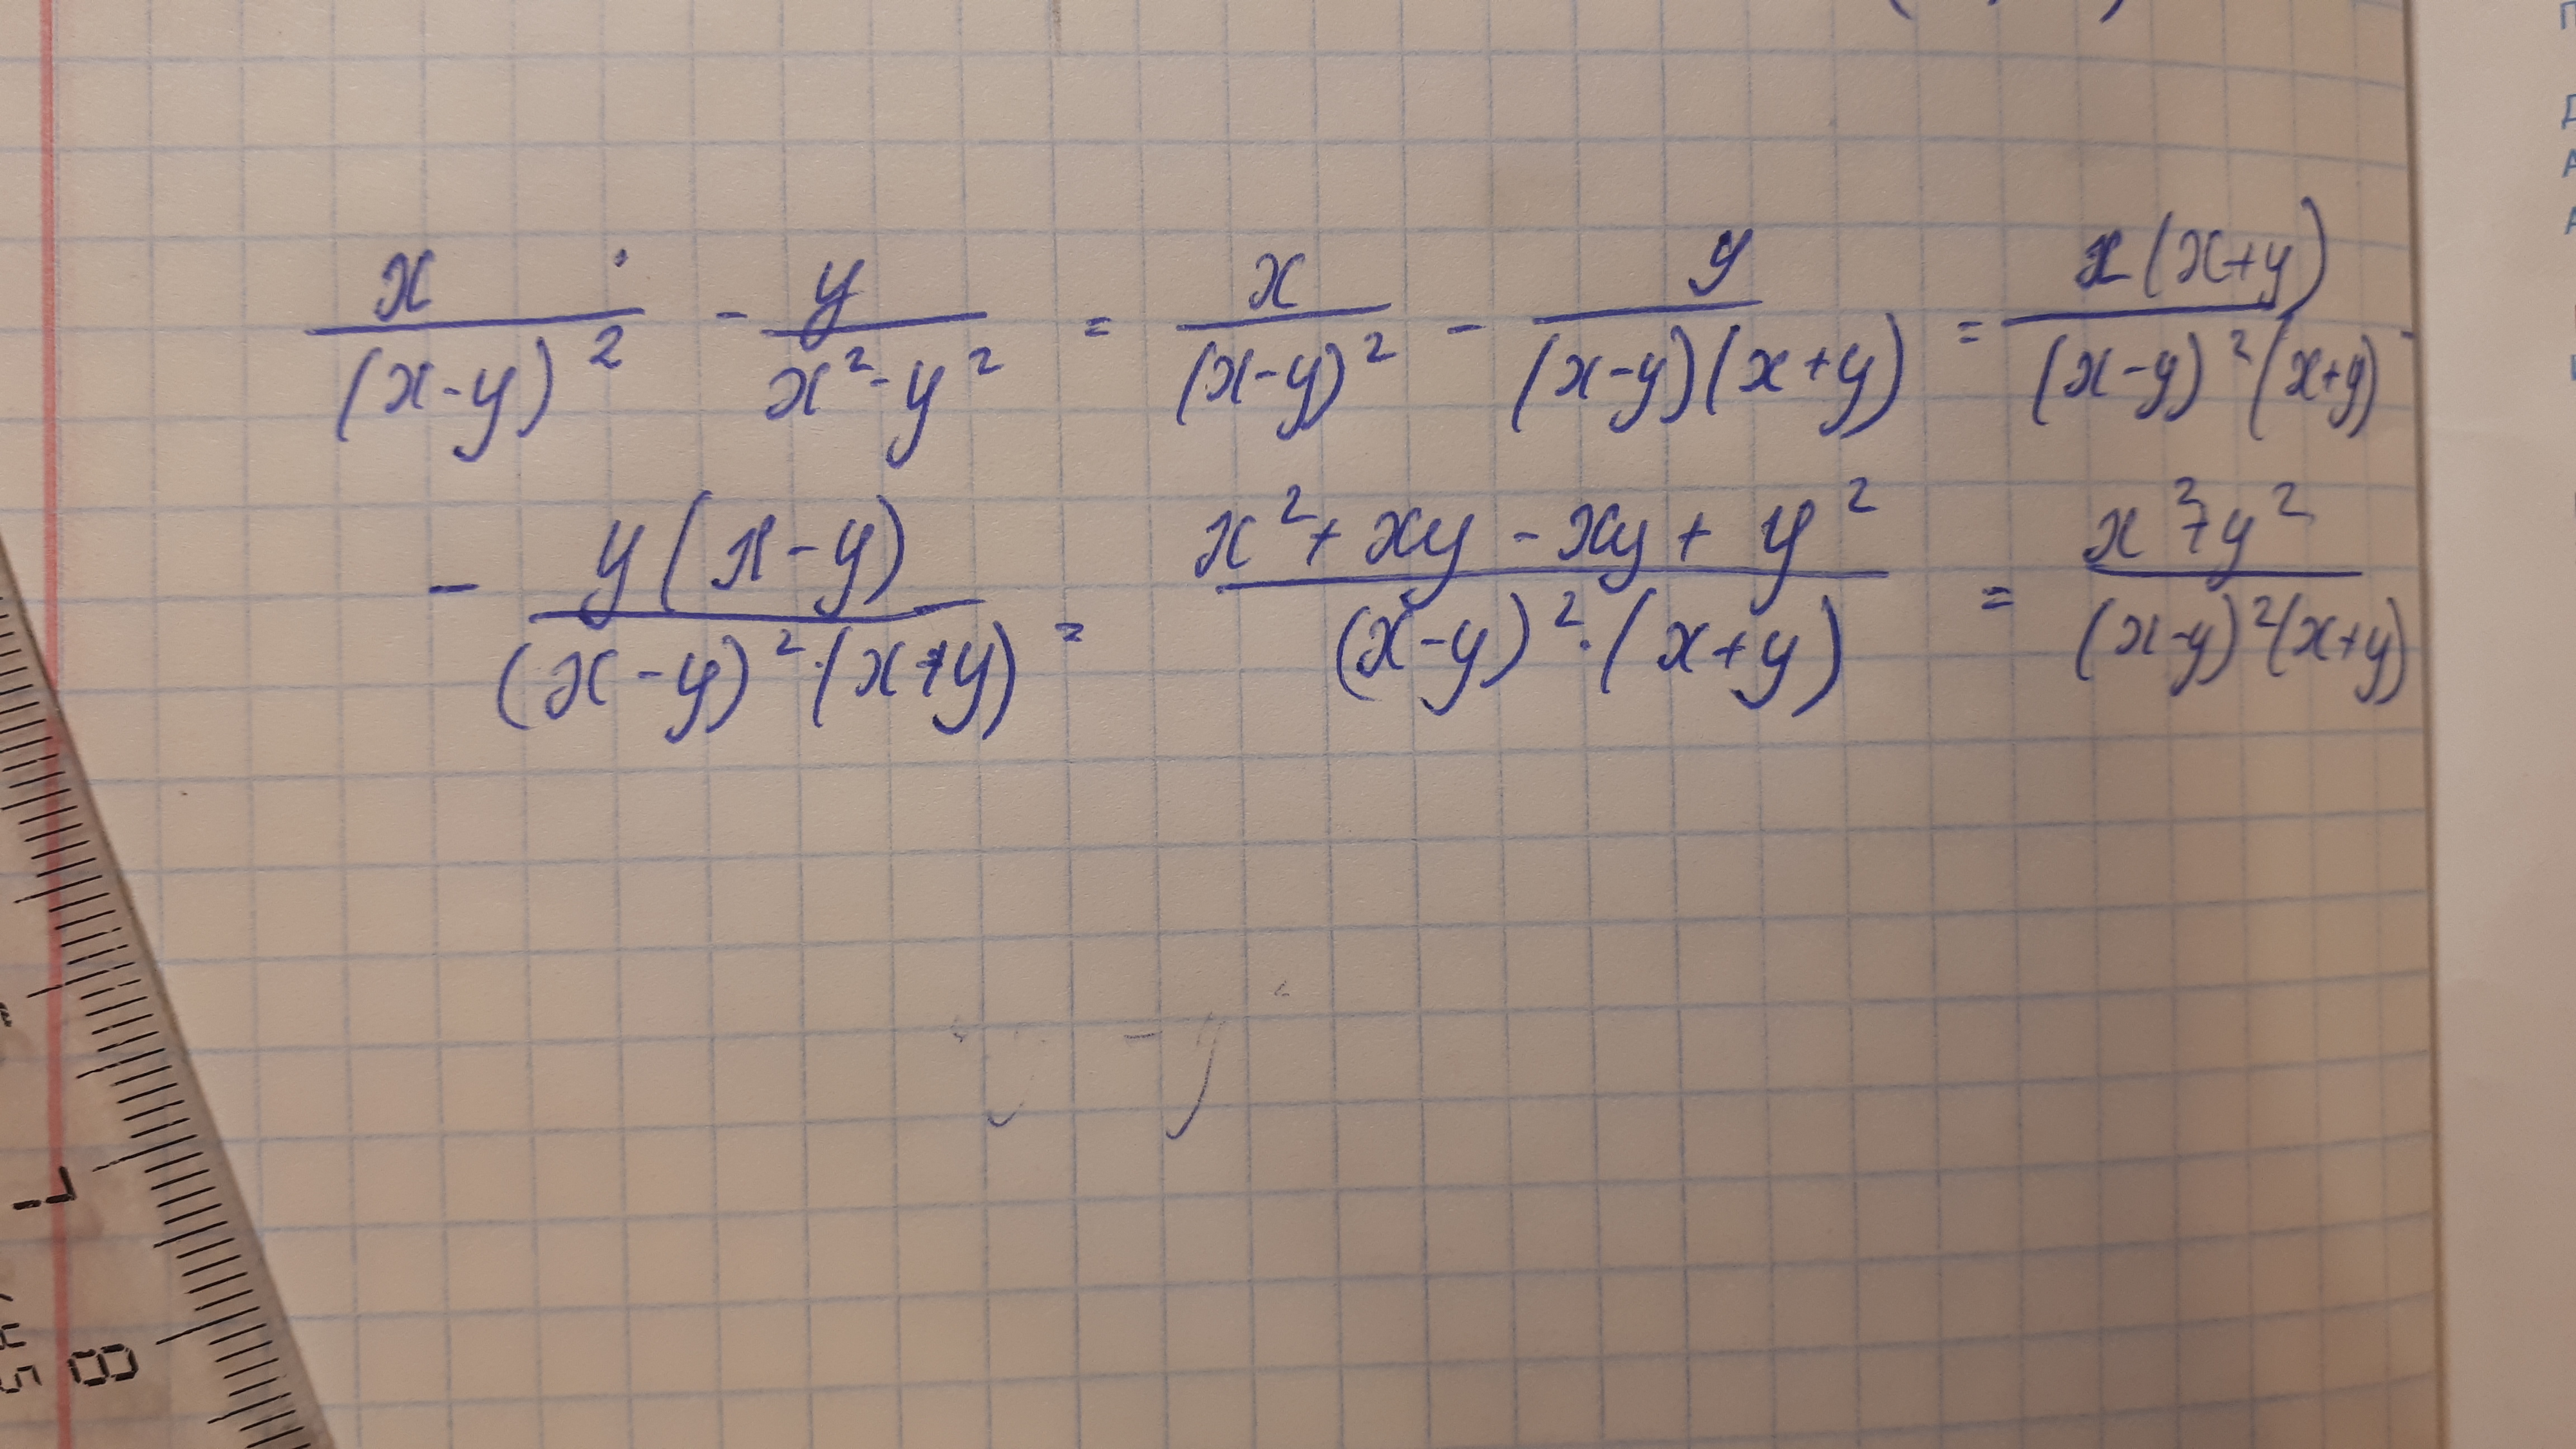 x/(x-y)² - y/(x²-y²) = x/(x-y)² - y/((x-y)(x+y)) = x(x+y)/((x-y)²(x+y)) -
- y(x-y)/((x-y)²·(x+y)) = (x²+xy-xy+y²)/((x-y)²·(x+y)) = (x²+y²)/((x-y)²(x+y))
7
8